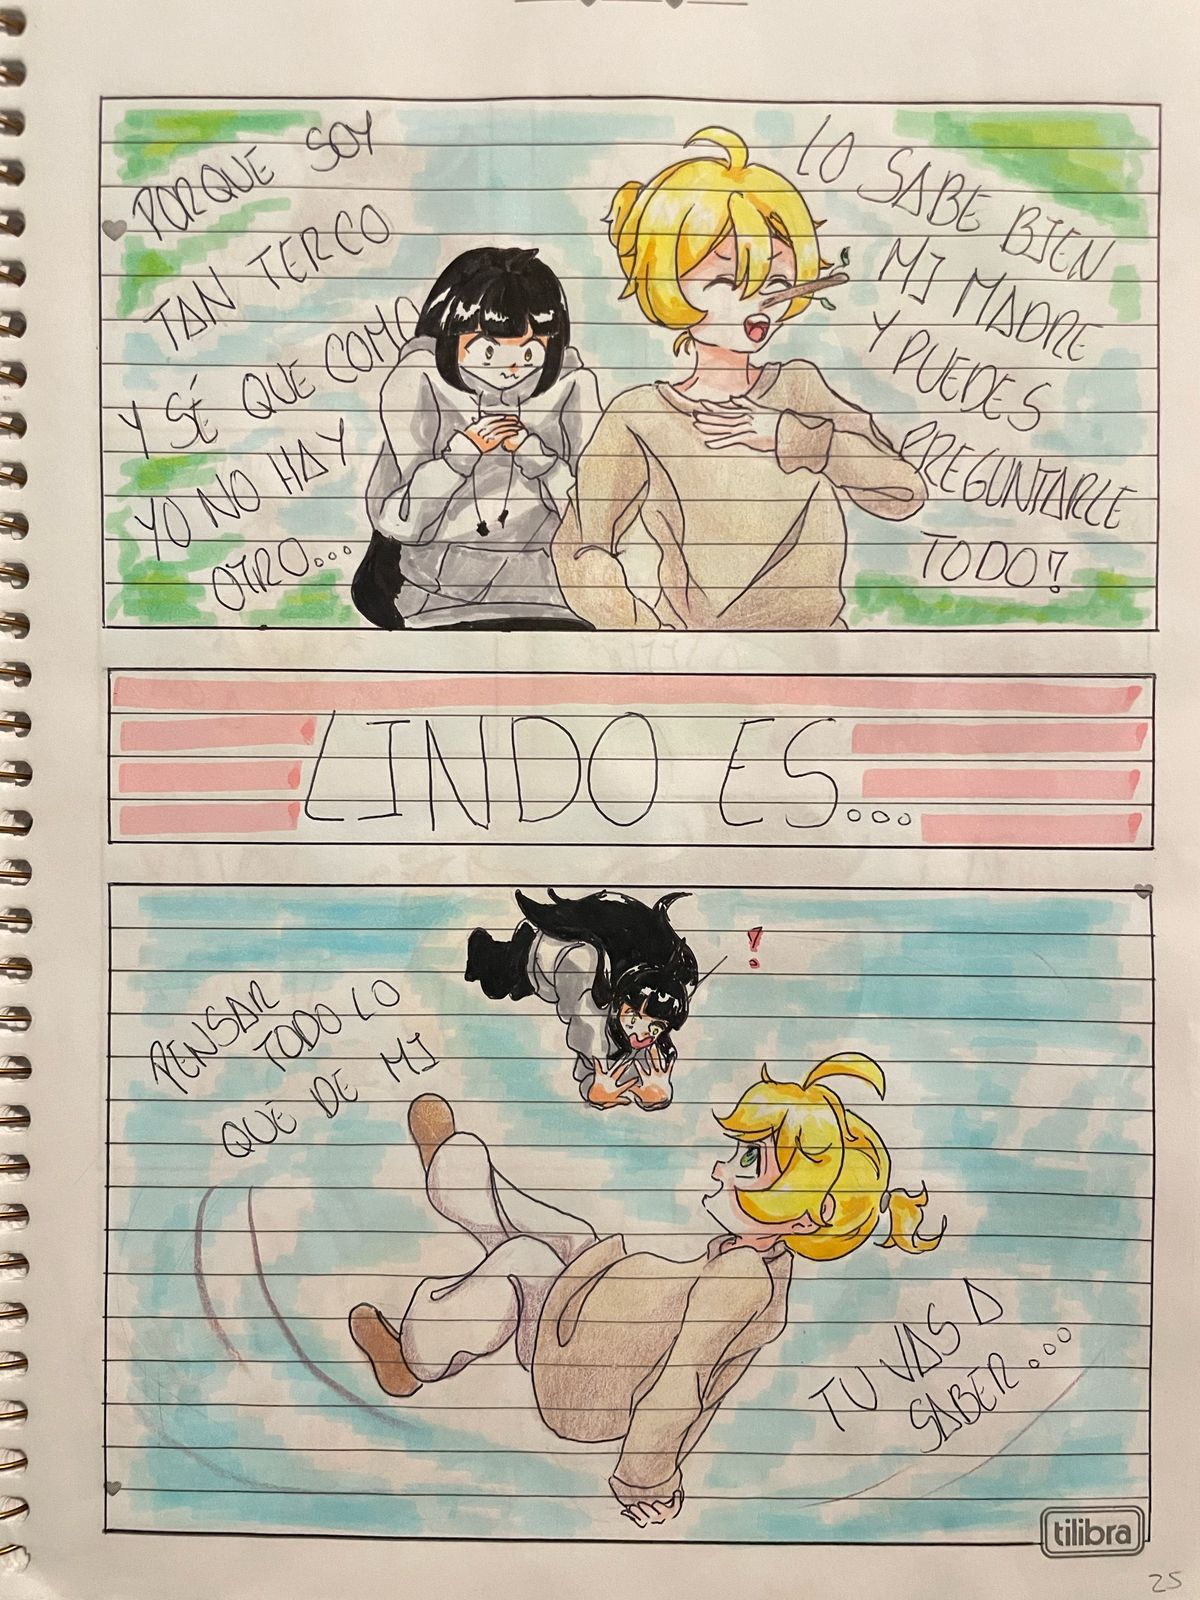 PORQUE SOY
TAN TERCO
Y SÉ QUE COMO
YO NO HAY
OTRO...
LO SABE BIEN
MI MADRE
Y PUEDES
PREGUNTARLE
TODO!
LINDO ES...
!
PENSAR
TODO LO
QUE DE MI
TU VAS A
SABER....
tilibra
25